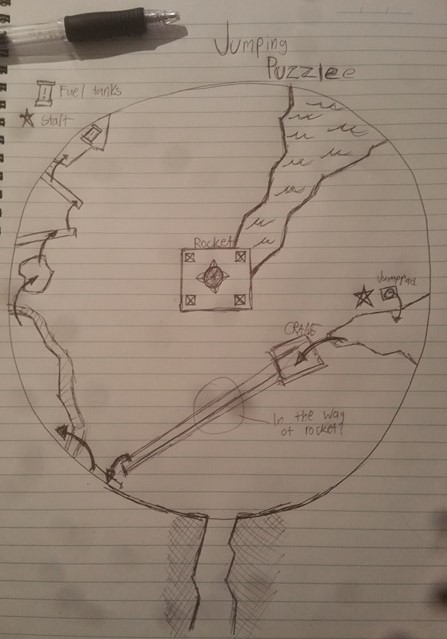 Jumping
Puzzlee
Fuel tanks
Start
Rocket
Jumppad
CRANE
In the way
of rocket?